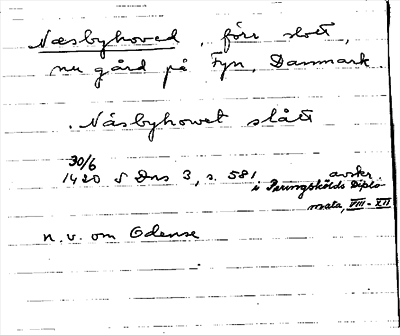 Næsbyhoved, förr slott,
nu gård på Fyn, Danmark.
Näsbyhowet slått
30/6
1420 N Dns 3, s. 581, avskr.
i Peringskölds Diplo-
mata, VIII-XII
n. v. om Odense